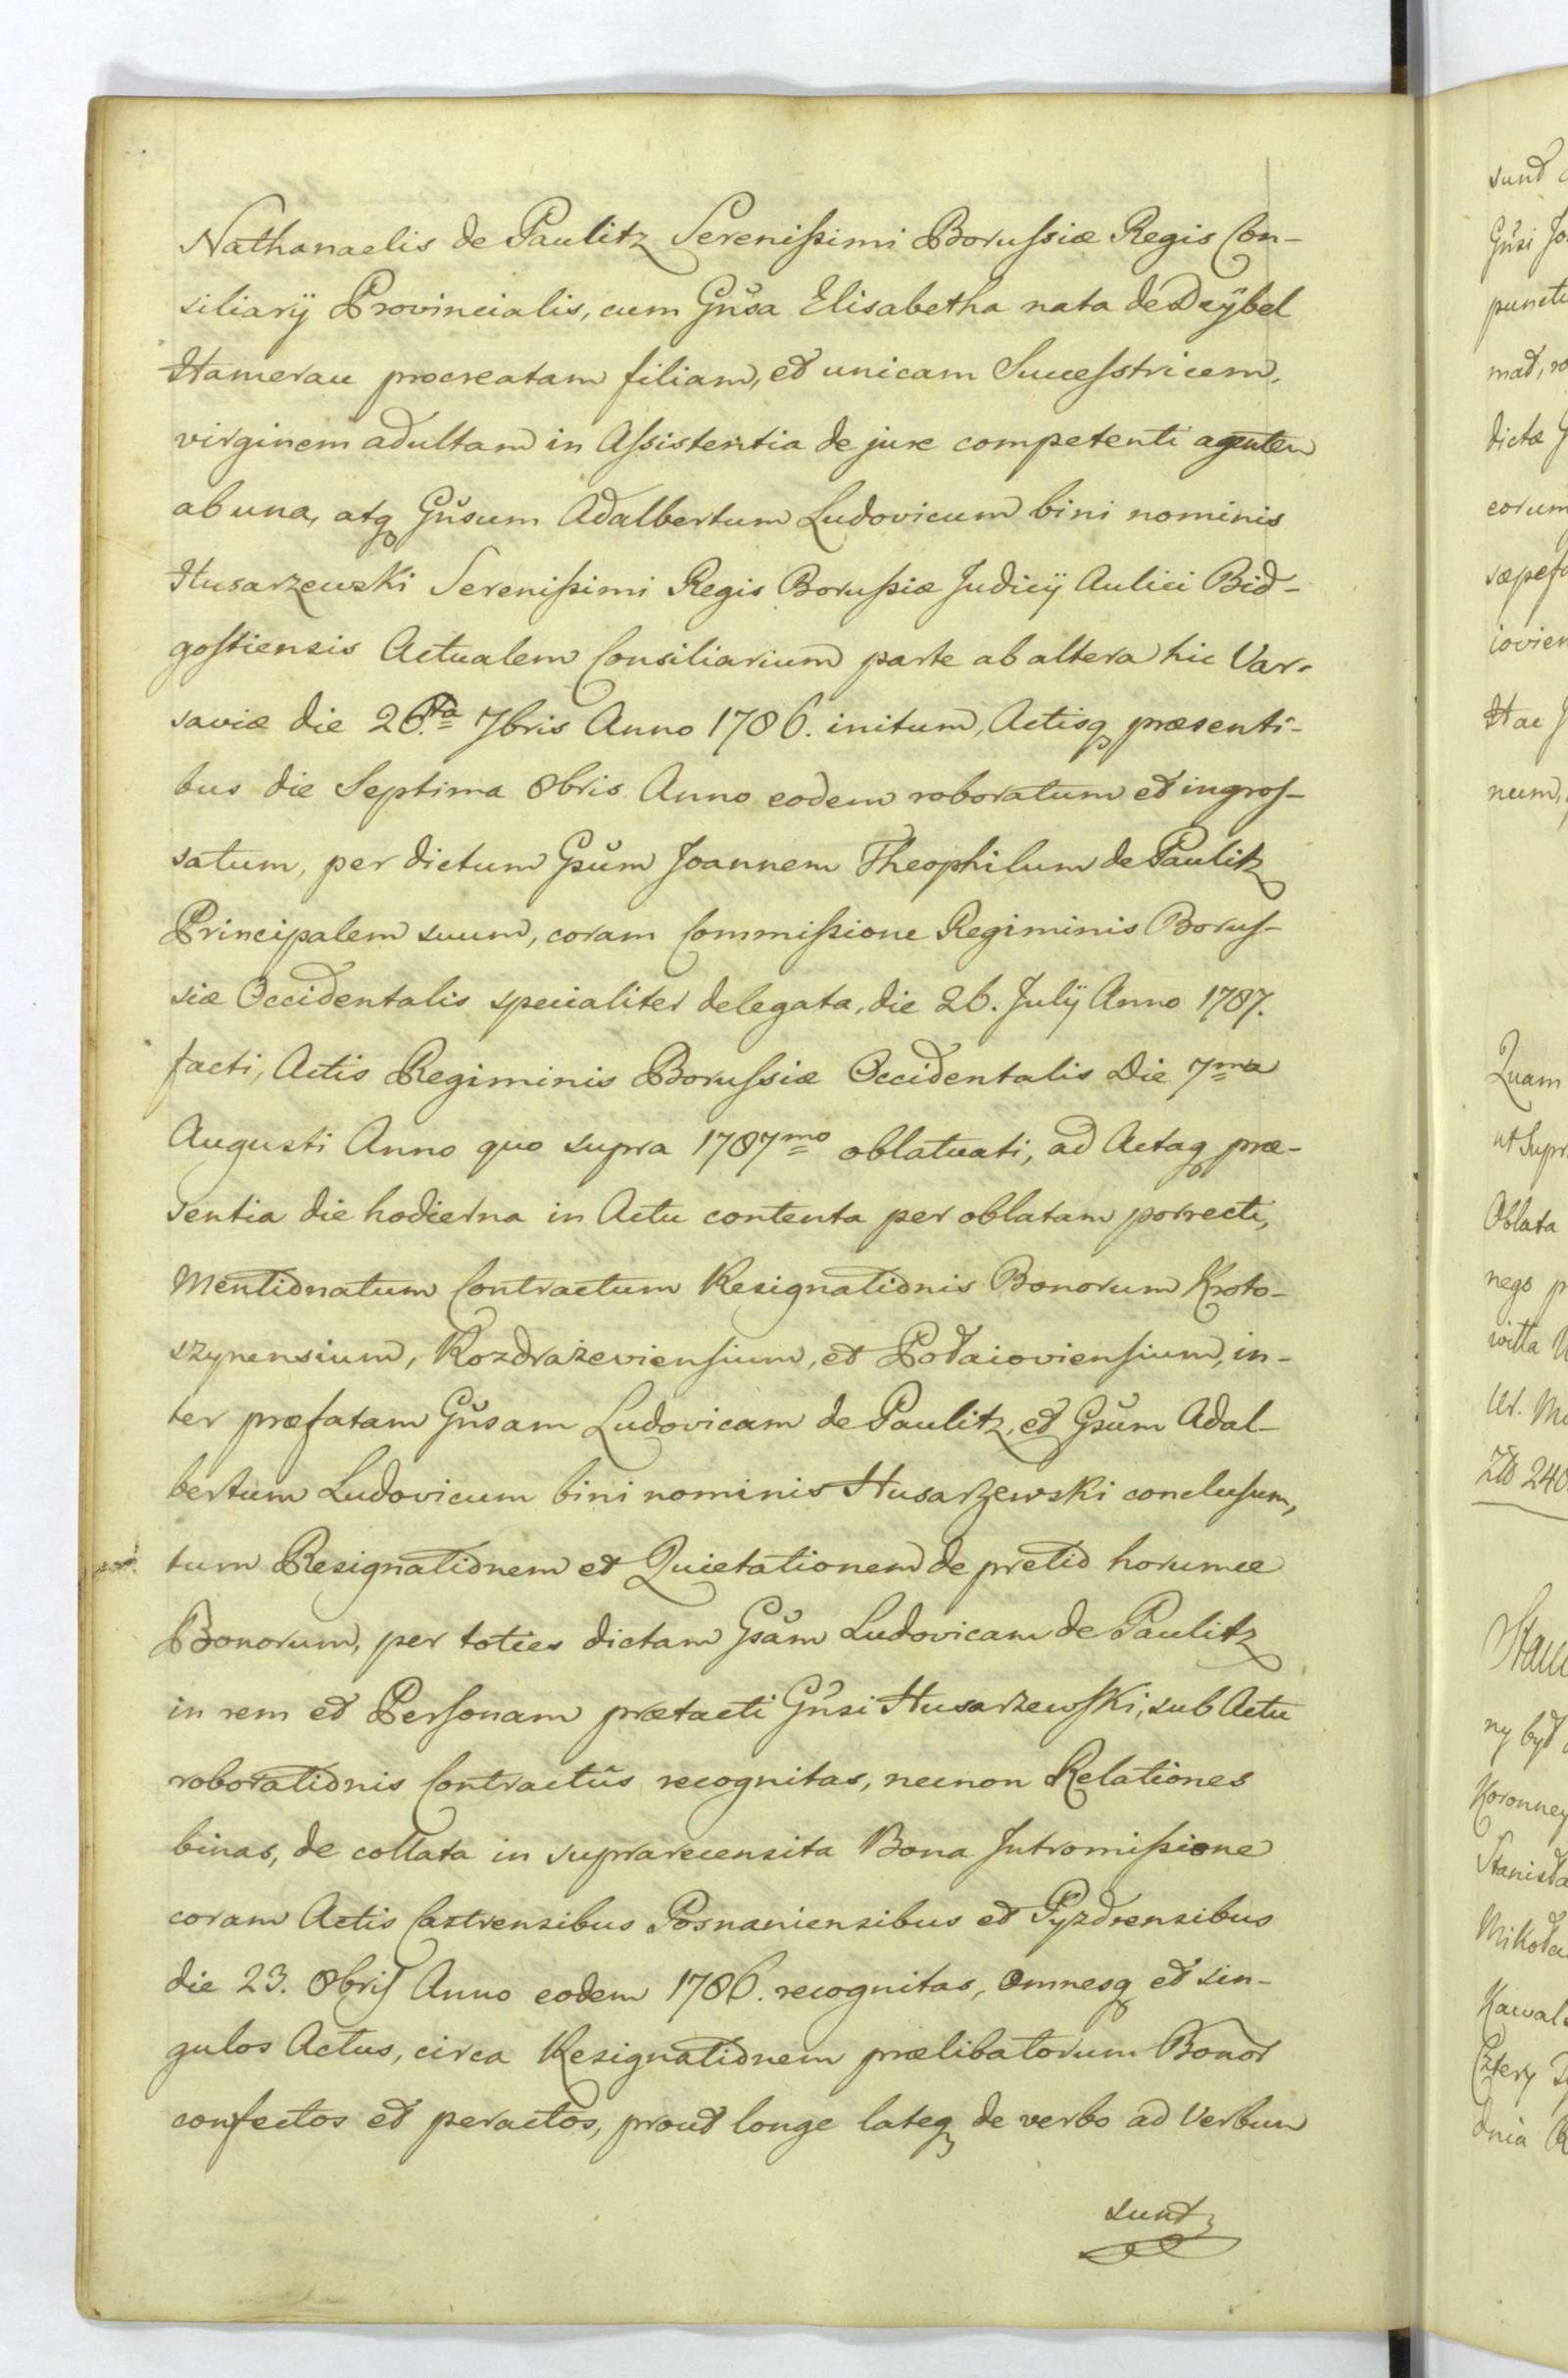 Nathanaelis de Paulitz Serenißimi Borußiæ Regis Con-
siliarÿ Provincialis, cum Gnsa Elisabetha nata de Deÿbel
Hamerau procreatam filiam, et unicam Succeßtricem,
virginem adultam in Aßistentia de jure competenti agentem
ab una, atq Gnsum Adalbertum Ludovicum bini nominis
Husarzewski Serenißimi Regis Borußiæ Judicÿ Aulici Bid-
gostiensis Actualem Consiliarium parte ab altera hic Var-
saviæ die 26ta 7bris Anno 1786. initum, Actisq præsenti-
bus die Septima 8bris Anno eodem roboratum et ingros-
satum, per dictum Gsum Joannem Theophilum de Paulitz
Principalem suum, coram Commißione Regiminis Borus-
siæ Occidentalis specialiter delegata, die 26. Julÿ Anno 1787.
facti, Actis Regiminis Borußiæ Occidentalis Die 7ma
Augusti Anno quo supra 1787mo oblatuati, ad Actaq præ-
sentia die hodierna in Actu contenta per oblatam porrecti,
Mentionatum Contractum Resignationis Bonorum Kroto-
szynensium, Rozdrażeviensium, et Potaioviensium, in-
ter præfatam Gnsam Ludovicam de Paulitz, et Gsum Adal-
bertum Ludovicum bini nominis Husarzewski conclusum,
tum Resignationem et Quietationem de pretio horumce
Bonorum, per toties dictam Gsam Ludovicam de Paulitz
in rem et Personam prætacti Gnsi Husarzewski, sub Actu
roborationis Contractûs recognitas, necnon Relationes
binas, de collata in suprarecensita Bona Intromißione
coram Actis Castrensibus Posnaniensibus et Pyzdrensibus
die 23. 8bris Anno eodem 1786. recognitas, Omnesq et sin-
gulos Actus, circa Resignationem prælibatorum Bonor
confectos et peractos, prout longe lateq de verbo ad Verbum
sunt
sunt
Gnsi Jo
puncti
mat, ro
dictæ G
eorum
sæpef
iovien
Hac J
neum,
Quam
ut Supr
Oblata
nego p
witta
Ur. Mi
Zło 240
ny był
Koronney
Stanisła
Mikoła
Kawal
Cztery
dnia